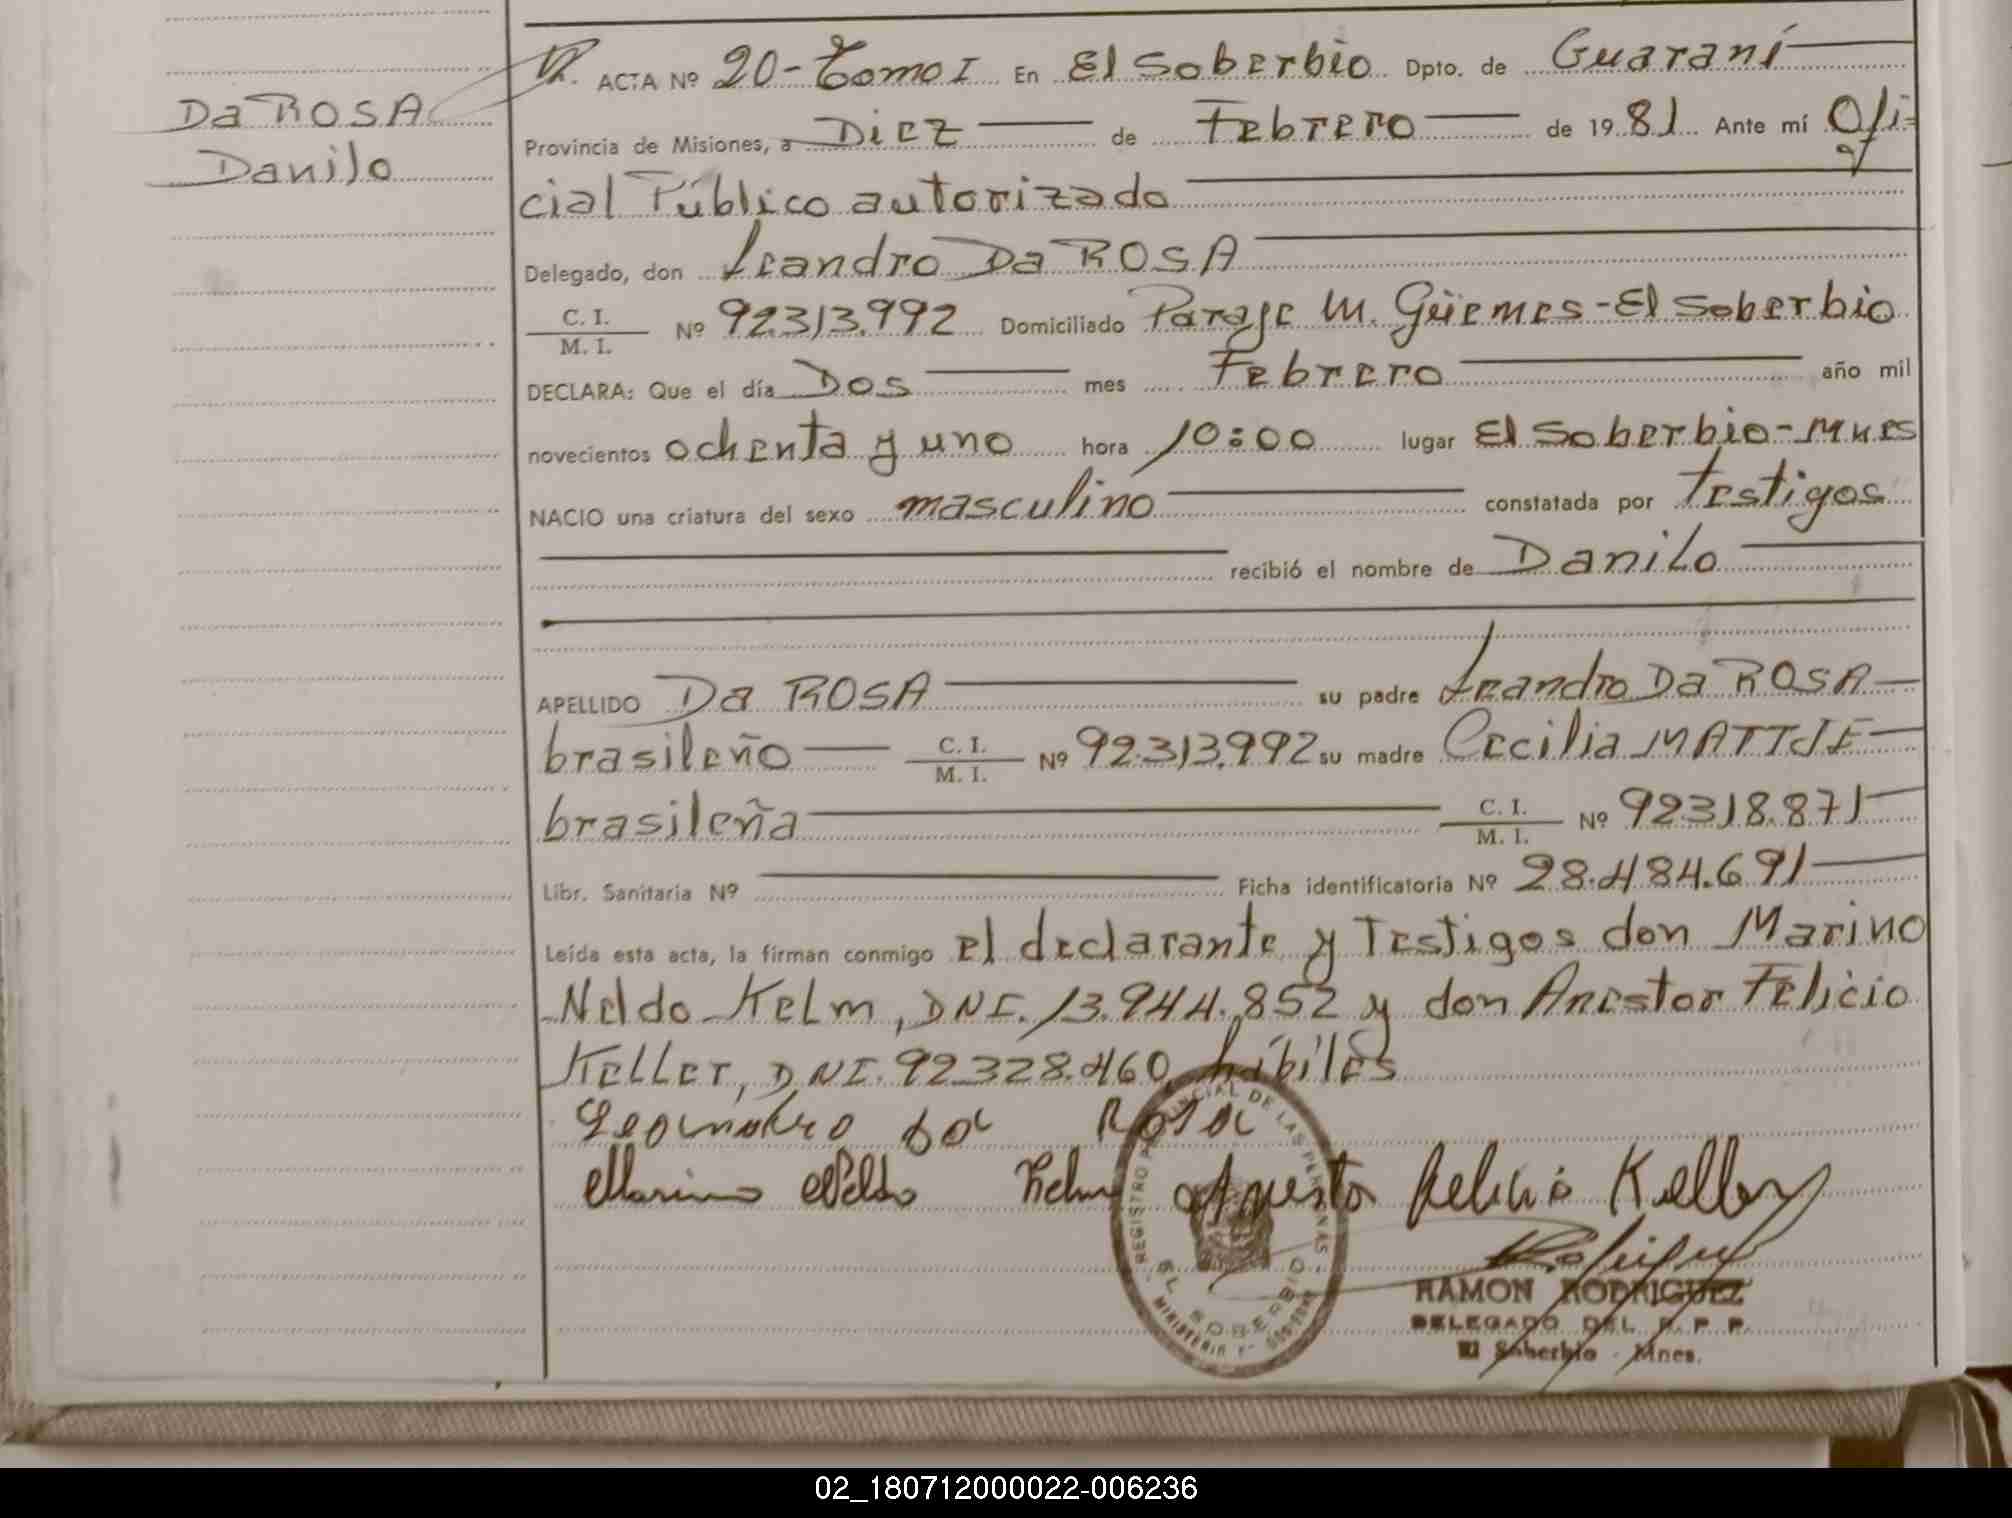 Da ROSA
Danilo
ACTA Nº 20-Tomo I En El Soberbio Dpto. de Guaraní
Provincia de Misiones, a Diez de Febrero de 1981 Ante mí Ofi-
cial Público autorizado
Delegado, don Leandro Da ROSA
C. I.
M. I. Nº 92.313.992 Domiciliado Paraje M. Güemes-El Soberbio
DECLARA: Que el día Dos mes Febrero año mil
novecientos ochenta y uno hora 10:00 lugar El Soberbio-Mnes
NACIO una criatura del sexo masculino constatada por testigos
recibió el nombre de Danilo
APELLIDO Da ROSA su padre Leandro Da ROSA
brasileño C. I. M. I. Nº 92.313.992 su madre Cecilia MATTJE
brasileña C. I. M. I. Nº 92.318.871
Libr. Sanitaria Nº Ficha identificatoria Nº 28.484.691
Leída esta acta, la firman conmigo el declarante y Testigos don Marino
Neldo Kelm, DNI. 13.944.852 y don Anestor Felicio
Keller, DNI. 92.328.460, hábiles
Leoandro da Rosa
Marino Neldo Kelm Anesto Felicio Keller
REGISTRO PROVINCIAL DE LAS PERSONAS
EL SOBERBIO
RAMON RODRIGUEZ
DELEGADO DEL R. P. P.
El Soberbio - Mnes.
02_180712000022-006236